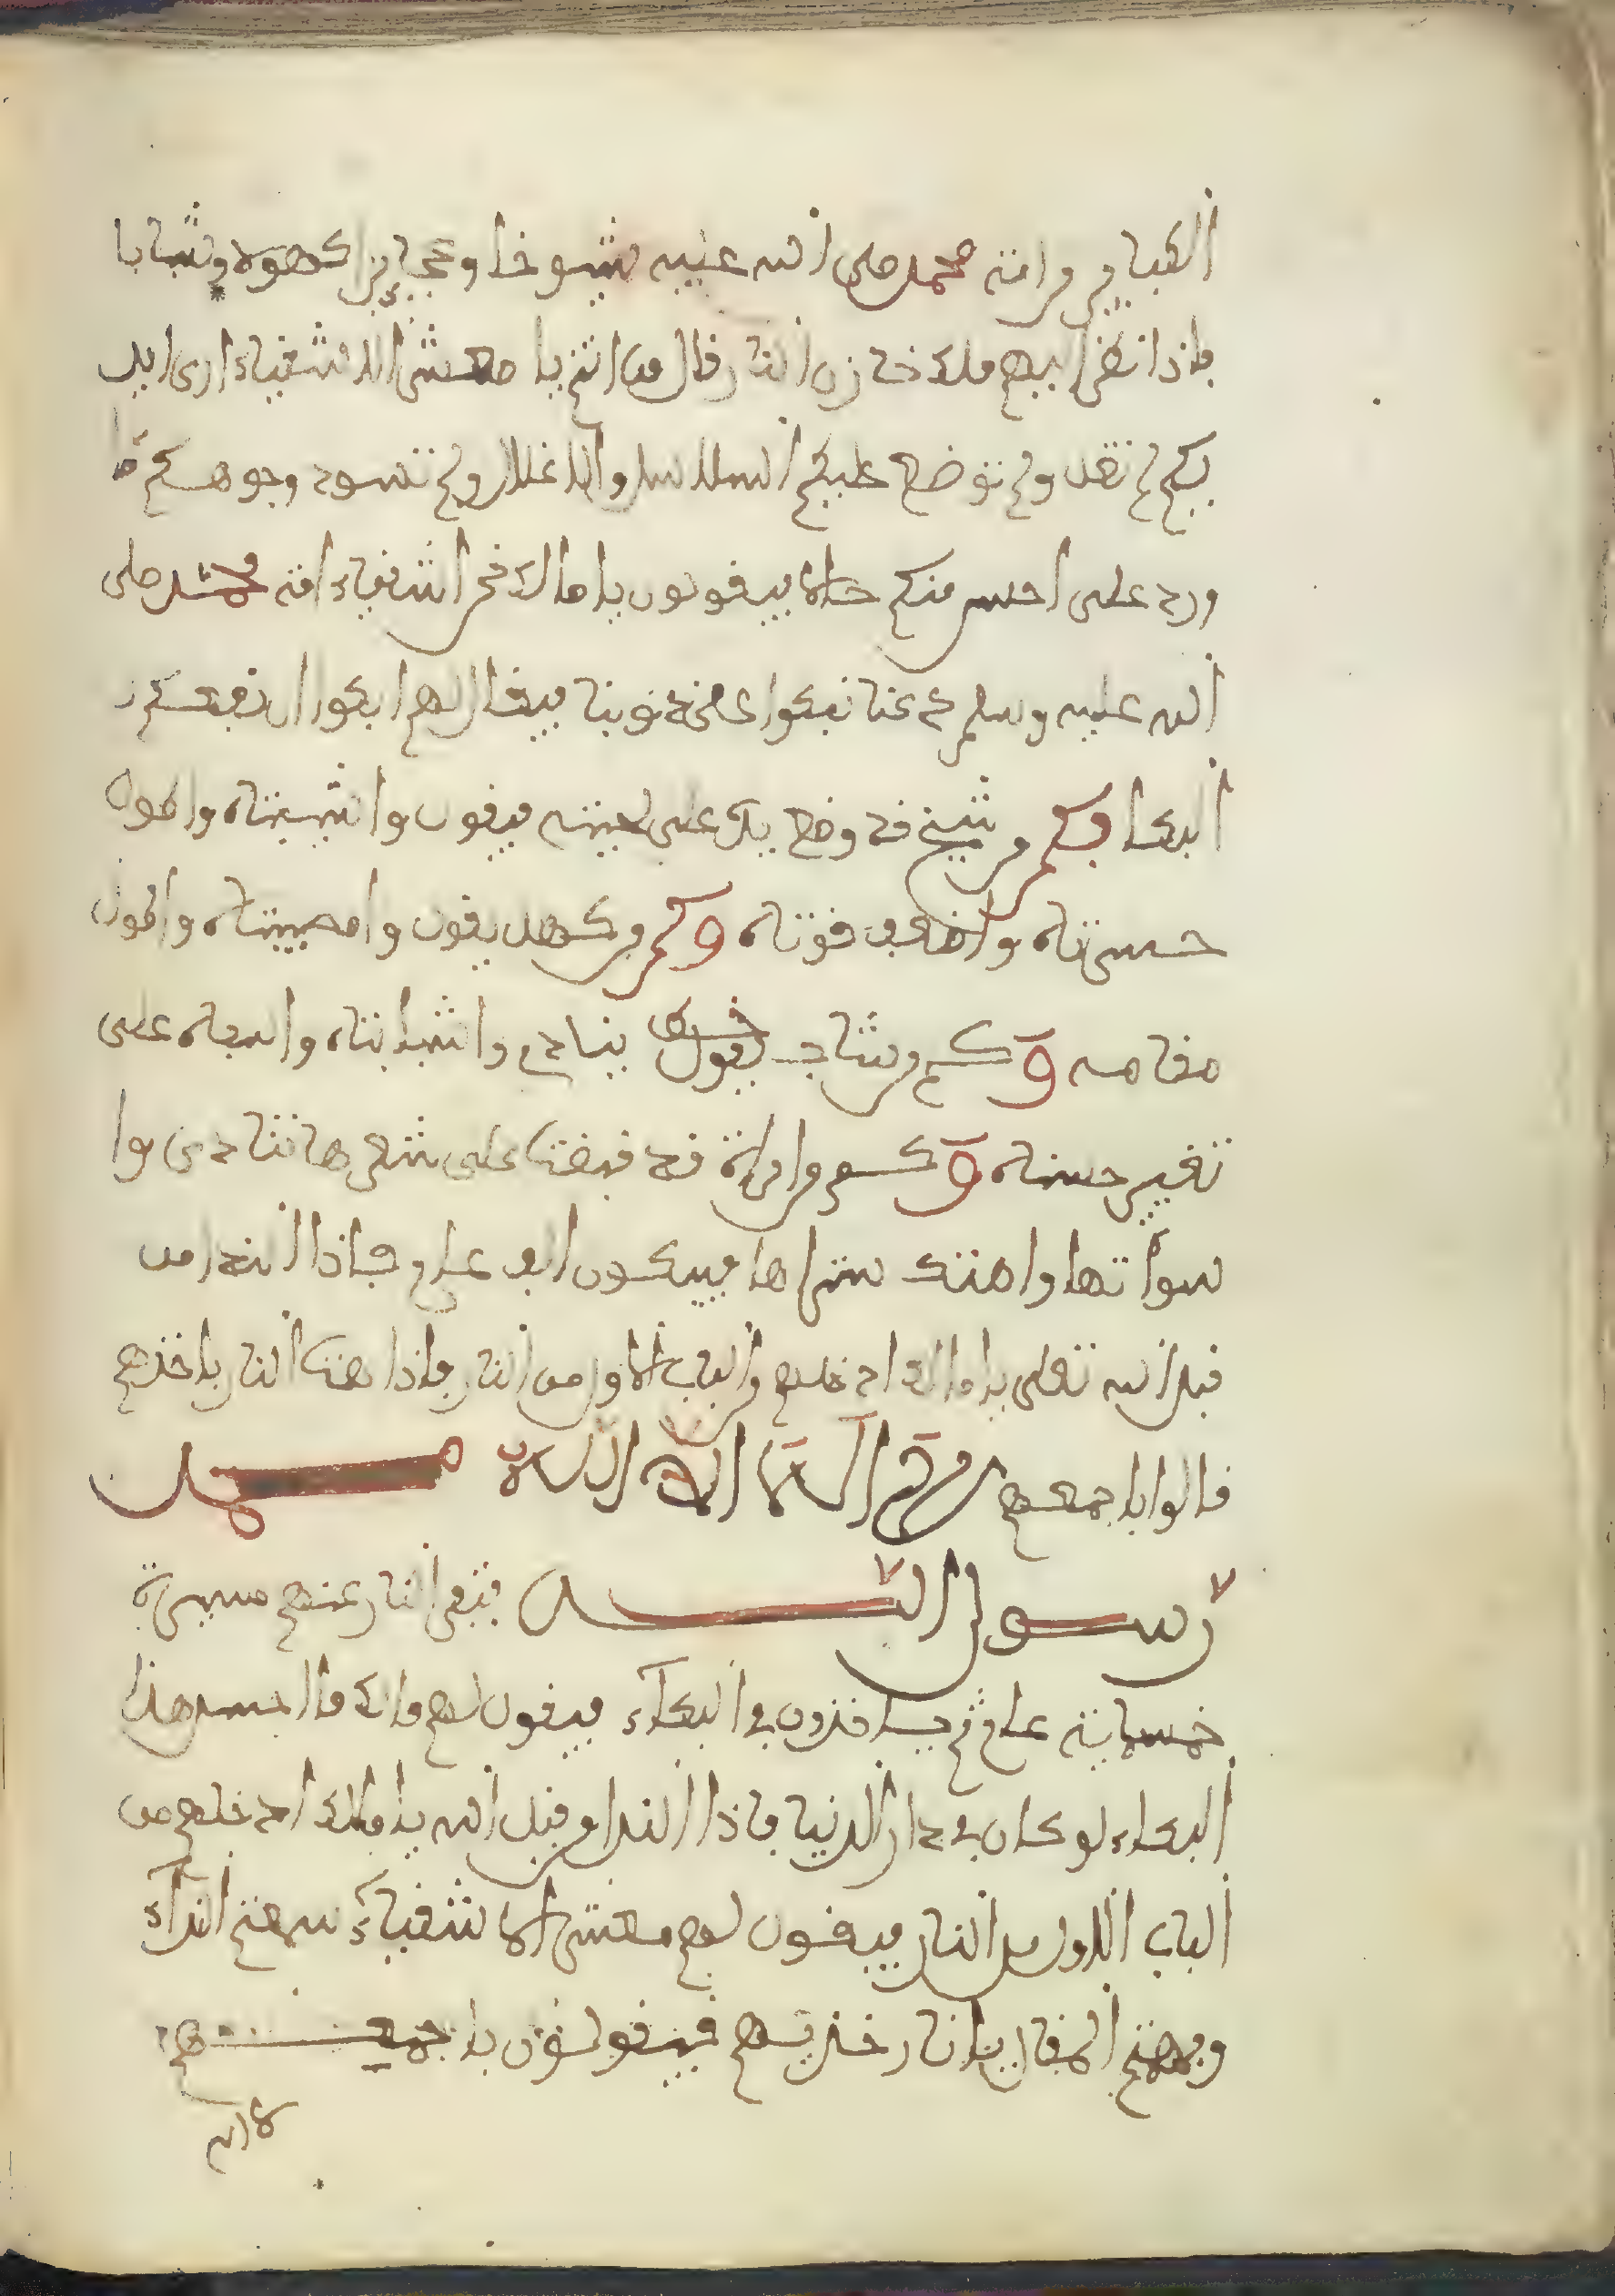 الكباير من امة محمد صلى الله عليه شيوخا وعجايزا كهولا وشبابا
فاذا نظر اليهم ملك خازن النار قال من انتم يا معشر الاشقياء ارى ايد
يكم لم تغل ولم توضع عليكم السلاسل والاغلال ولم تسود وجوهكم ما
ورد على احسن منكم حالا فيقولون يا مالك نحن اشقياء امة محمد صلى
الله عليه وسلم دعنا نبكوا على ذنوبنا فيقال لهم ابكوا لن ينفعكم
البكا فكم من شيخ قد وضع يده على لحيته فيقول واشيبتاه واطول
حسرتاه واضعف قوتاه وكم من كهل يقول وامصيبتاه واطول
مقامه وكم من شاب يقول ينادي واشبابتاه واسفاه على
تغيير حسناه وكم من امراة قد قبضت على شعرها تنادي وا
سوأتها واهتك ستراها فيبكون الف عام فاذا الندا من
قبل الله تعلى يا مالك ادخلهم من الباب الاول من النار فاذا همت النار باخذهم
قالوا باجمعهم لا اله الا الله محمد
رسول الله فتبقى النار عنهم مسيرة
خمسماية عام ثم ياخذون في البكاء فيقول لهم مالك ما احسن هذا
البكاء لو كان في دار الدنيا فاذا الندا من قبل الله يا مالك ادخلهم من
الباب الاول من النار فيقول لهم معشر الاشقياء سمعتم النداء
وفهمتم المقال يا نار خذيهم فيقولون باجمعهم
لا اله